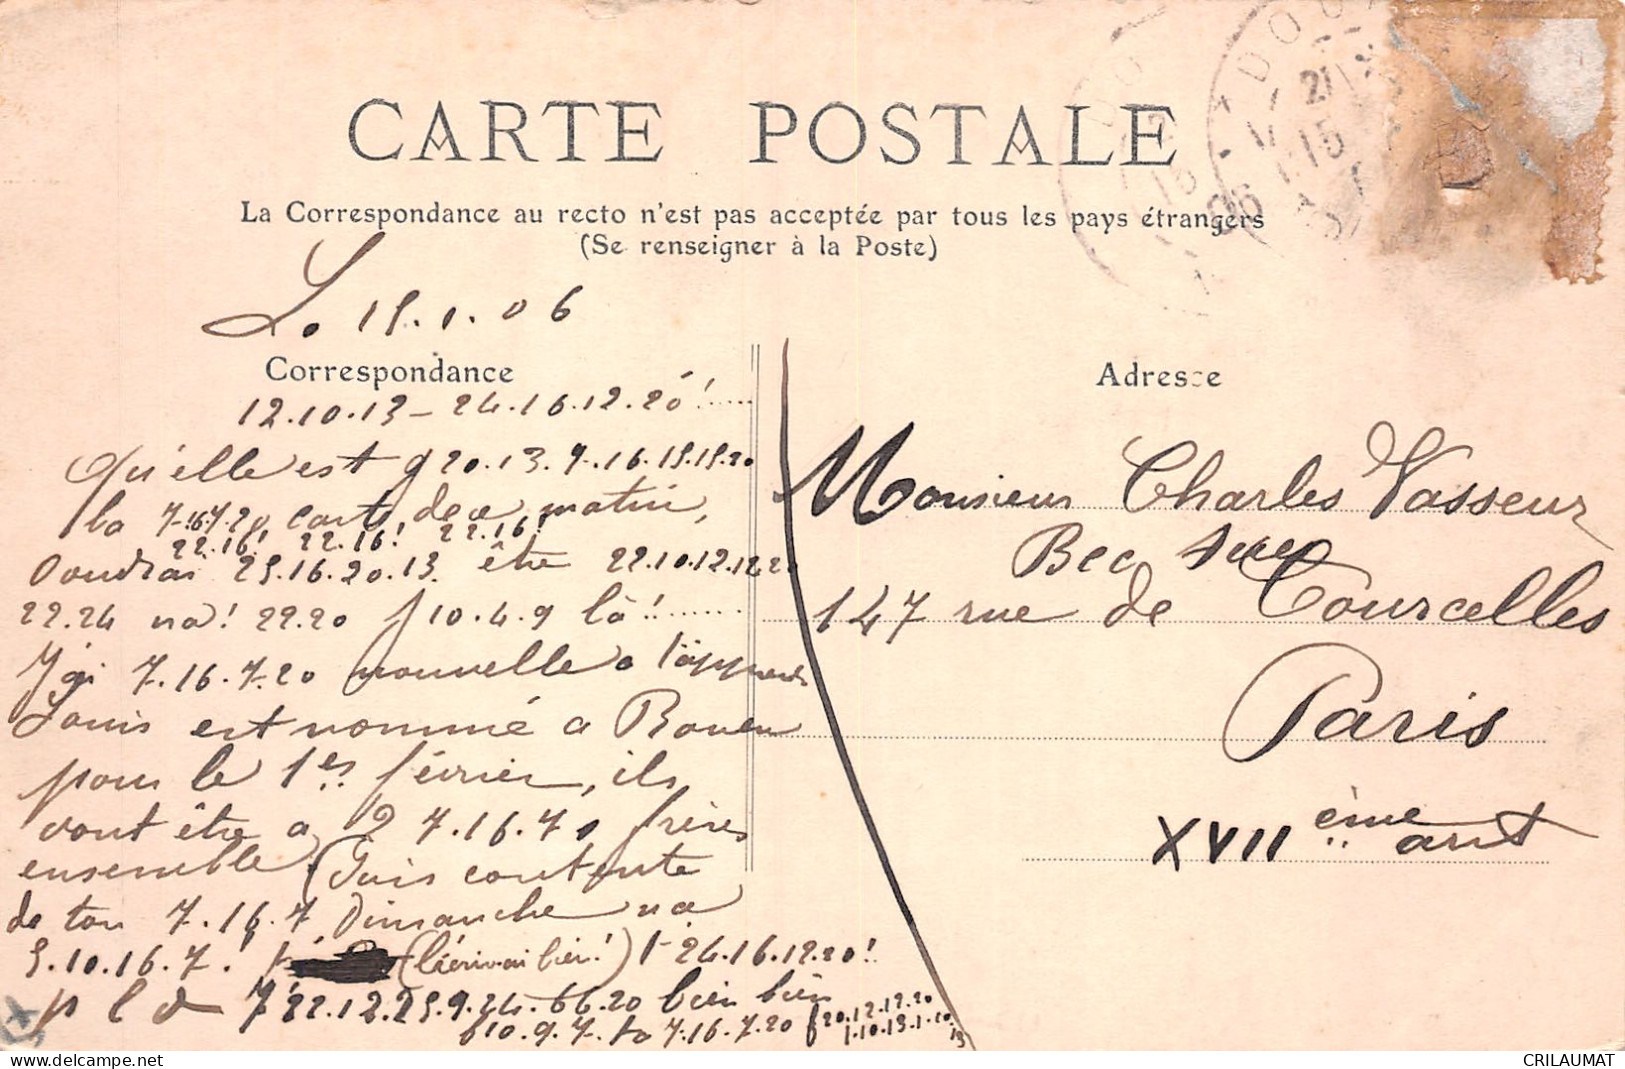 CARTE POSTALE
La Correspondance au recto n'est pas acceptée par tous les pays étrangers
(Se renseigner à la Poste)
Le 15.1.06
Correspondance
12.10.13 - 24.16.12.20!.....
qu'elle est 20.13.9.16.15.15.20
la 7.16.7.20 carte de ce matin,
22.16! 22.16! 22.16!
Voudrai 25.16.20.13 être 22.10.12.12.20
22.24 na! 22.20 10.4.9 là!!......
J'ai 7.16.7.20 nouvelle a
Louis est nommé a Rouen
pour le 1er février, ils
vont être a 2 7.16.7.20 frères
ensemble. Suis contente
de ton 7.16.7. Dimanche na
5.10.16.7! (l'écrivai bien!) 24.16.12.20!
p l d 22.12.25.9.24. 20 bien bien
10.9.7. ta 7.16.7.20 20.12.12.20
1.10.13.1.20
13
Adresse
Monsieur Charles Vasseur
147 rue de Courcelles
Paris
XVIIème arrt
DOU
21
15
06
CRILAUMAT